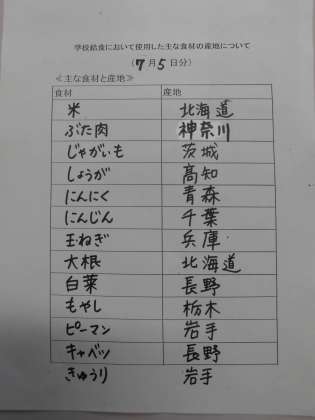 学校給食において使用した主な食材の産地について
(7月5日分)
≪主な食材と産地≫
食材 産地
米 北海道
ぶた肉 神奈川
じゃがいも 茨城
しょうが 高知
にんにく 青森
にんじん 千葉
玉ねぎ 兵庫
大根 北海道
白菜 長野
もやし 栃木
ピーマン 岩手
キャベツ 長野
きゅうり 岩手